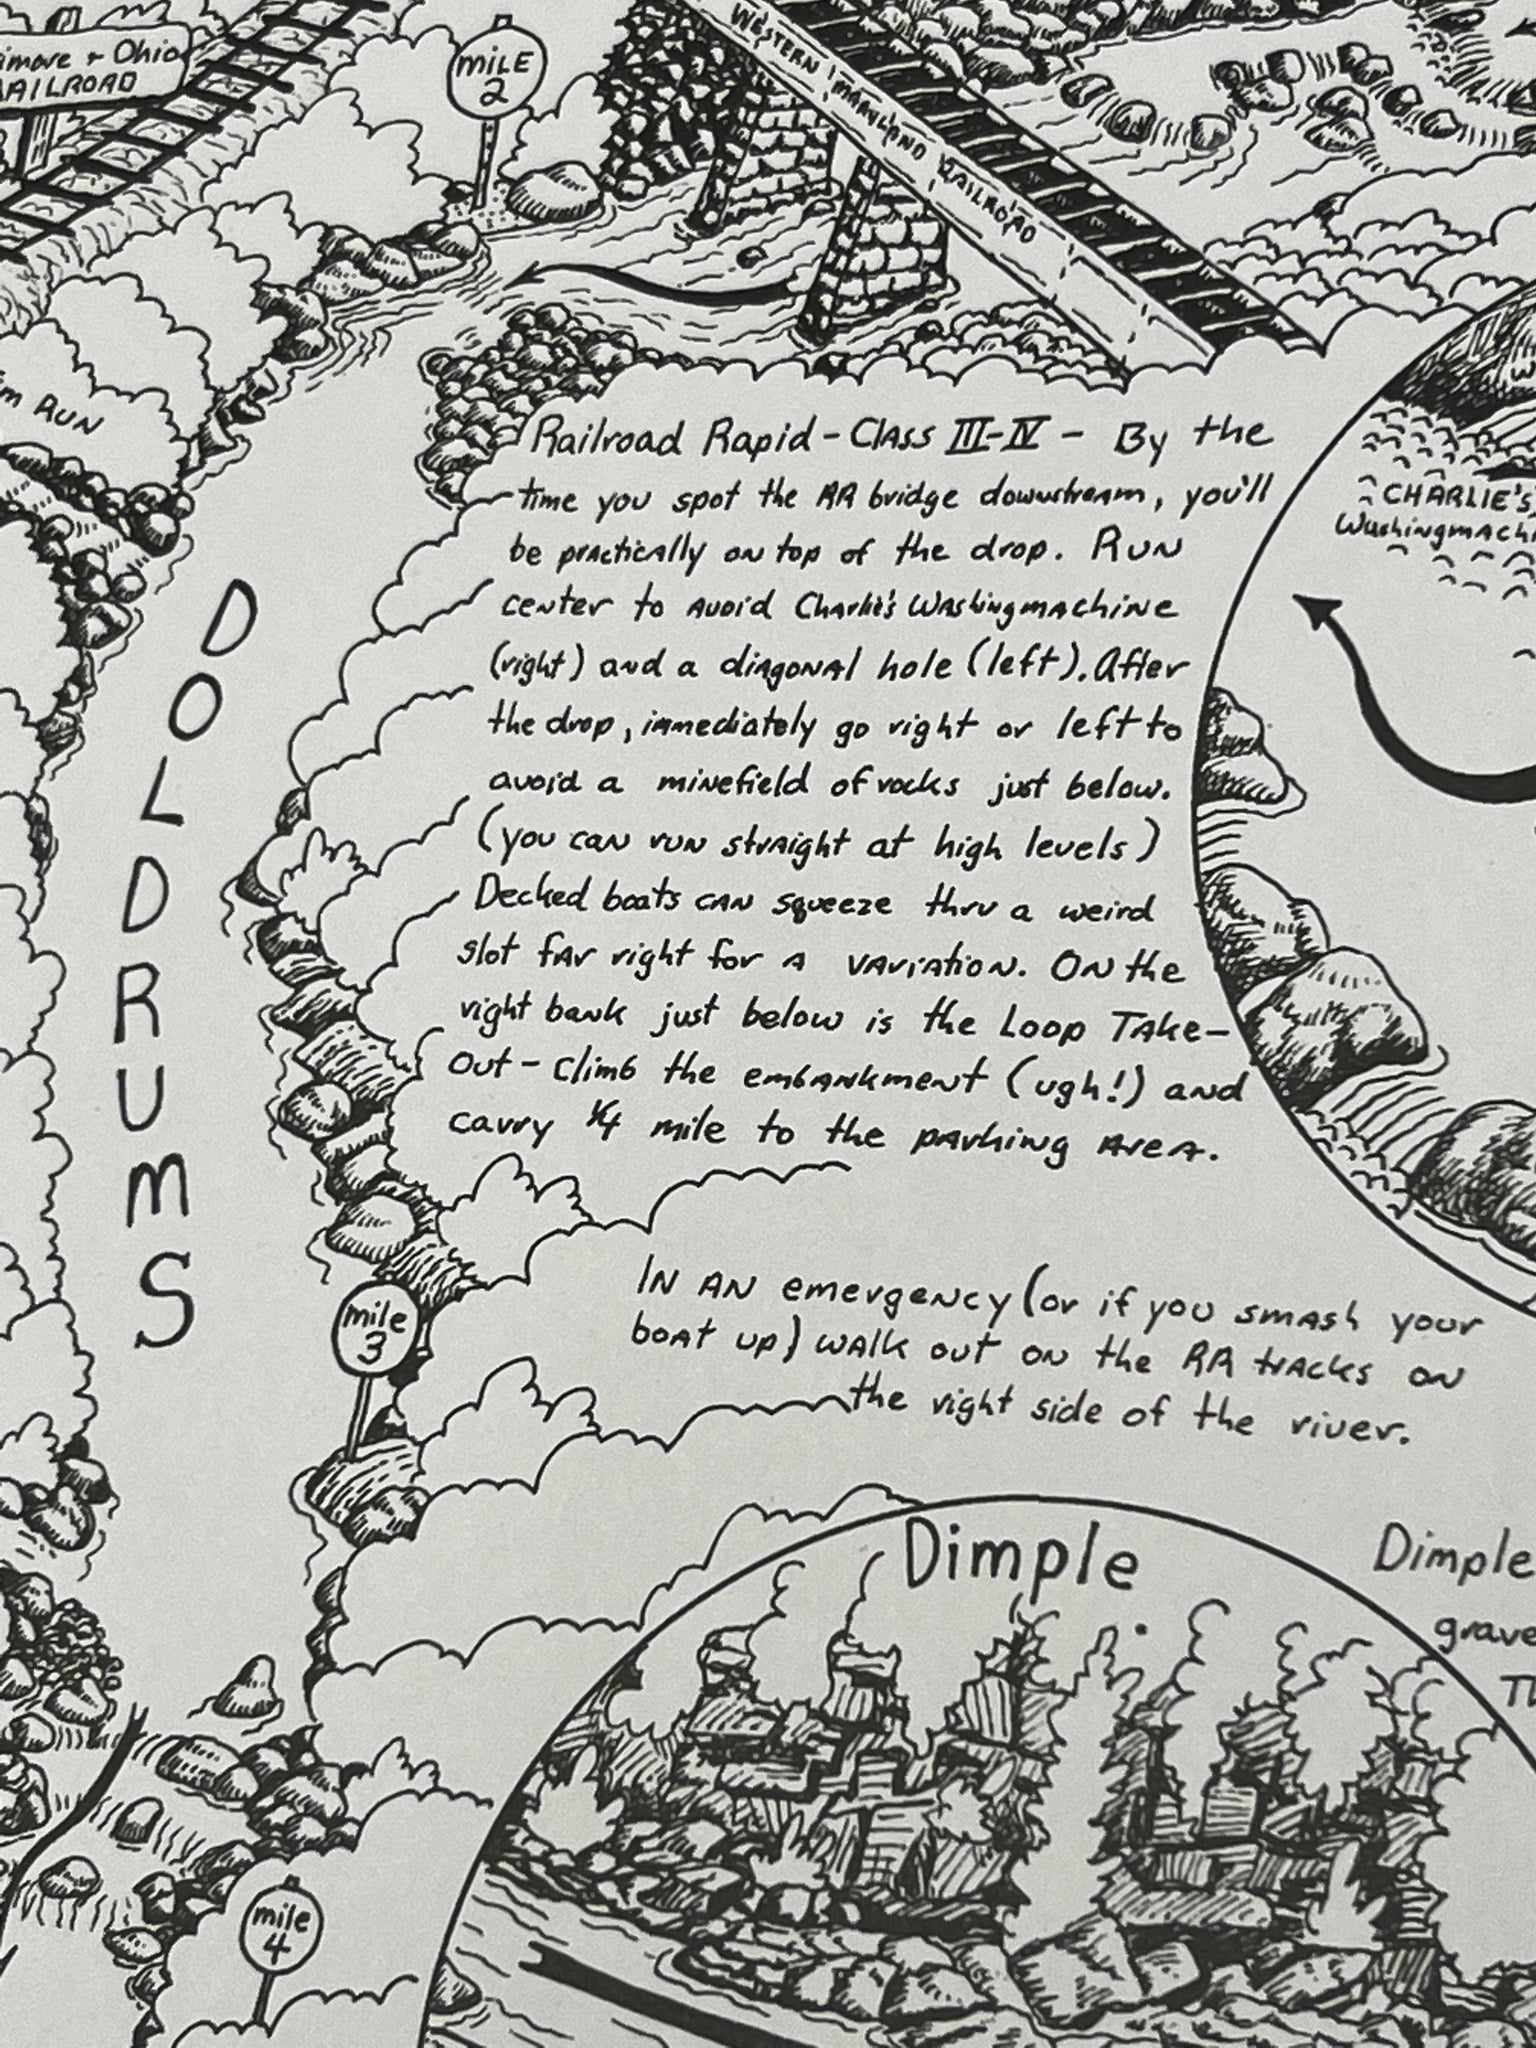 Ohio
RAILROAD
MILE
2
WESTERN MARYLAND RAILROAD
RUN
Railroad Rapid - Class III-IV - By the
time you spot the RR bridge downstream, you'll
be practically on top of the drop. Run
center to avoid Charlie's Washingmachine
(right) and a diagonal hole (left). After
the drop, immediately go right or left to
avoid a minefield of rocks just below.
(you can run straight at high levels)
Decked boats can squeeze thru a weird
slot far right for a variation. On the
right bank just below is the Loop Take-
out - climb the embankment (ugh!) and
carry 1/4 mile to the parking area.
CHARLIE'S
DOLDRUMS
mile
3
In an emergency (or if you smash your
boat up) walk out on the RR tracks on
the right side of the river.
Dimple
Dimple
mile
4